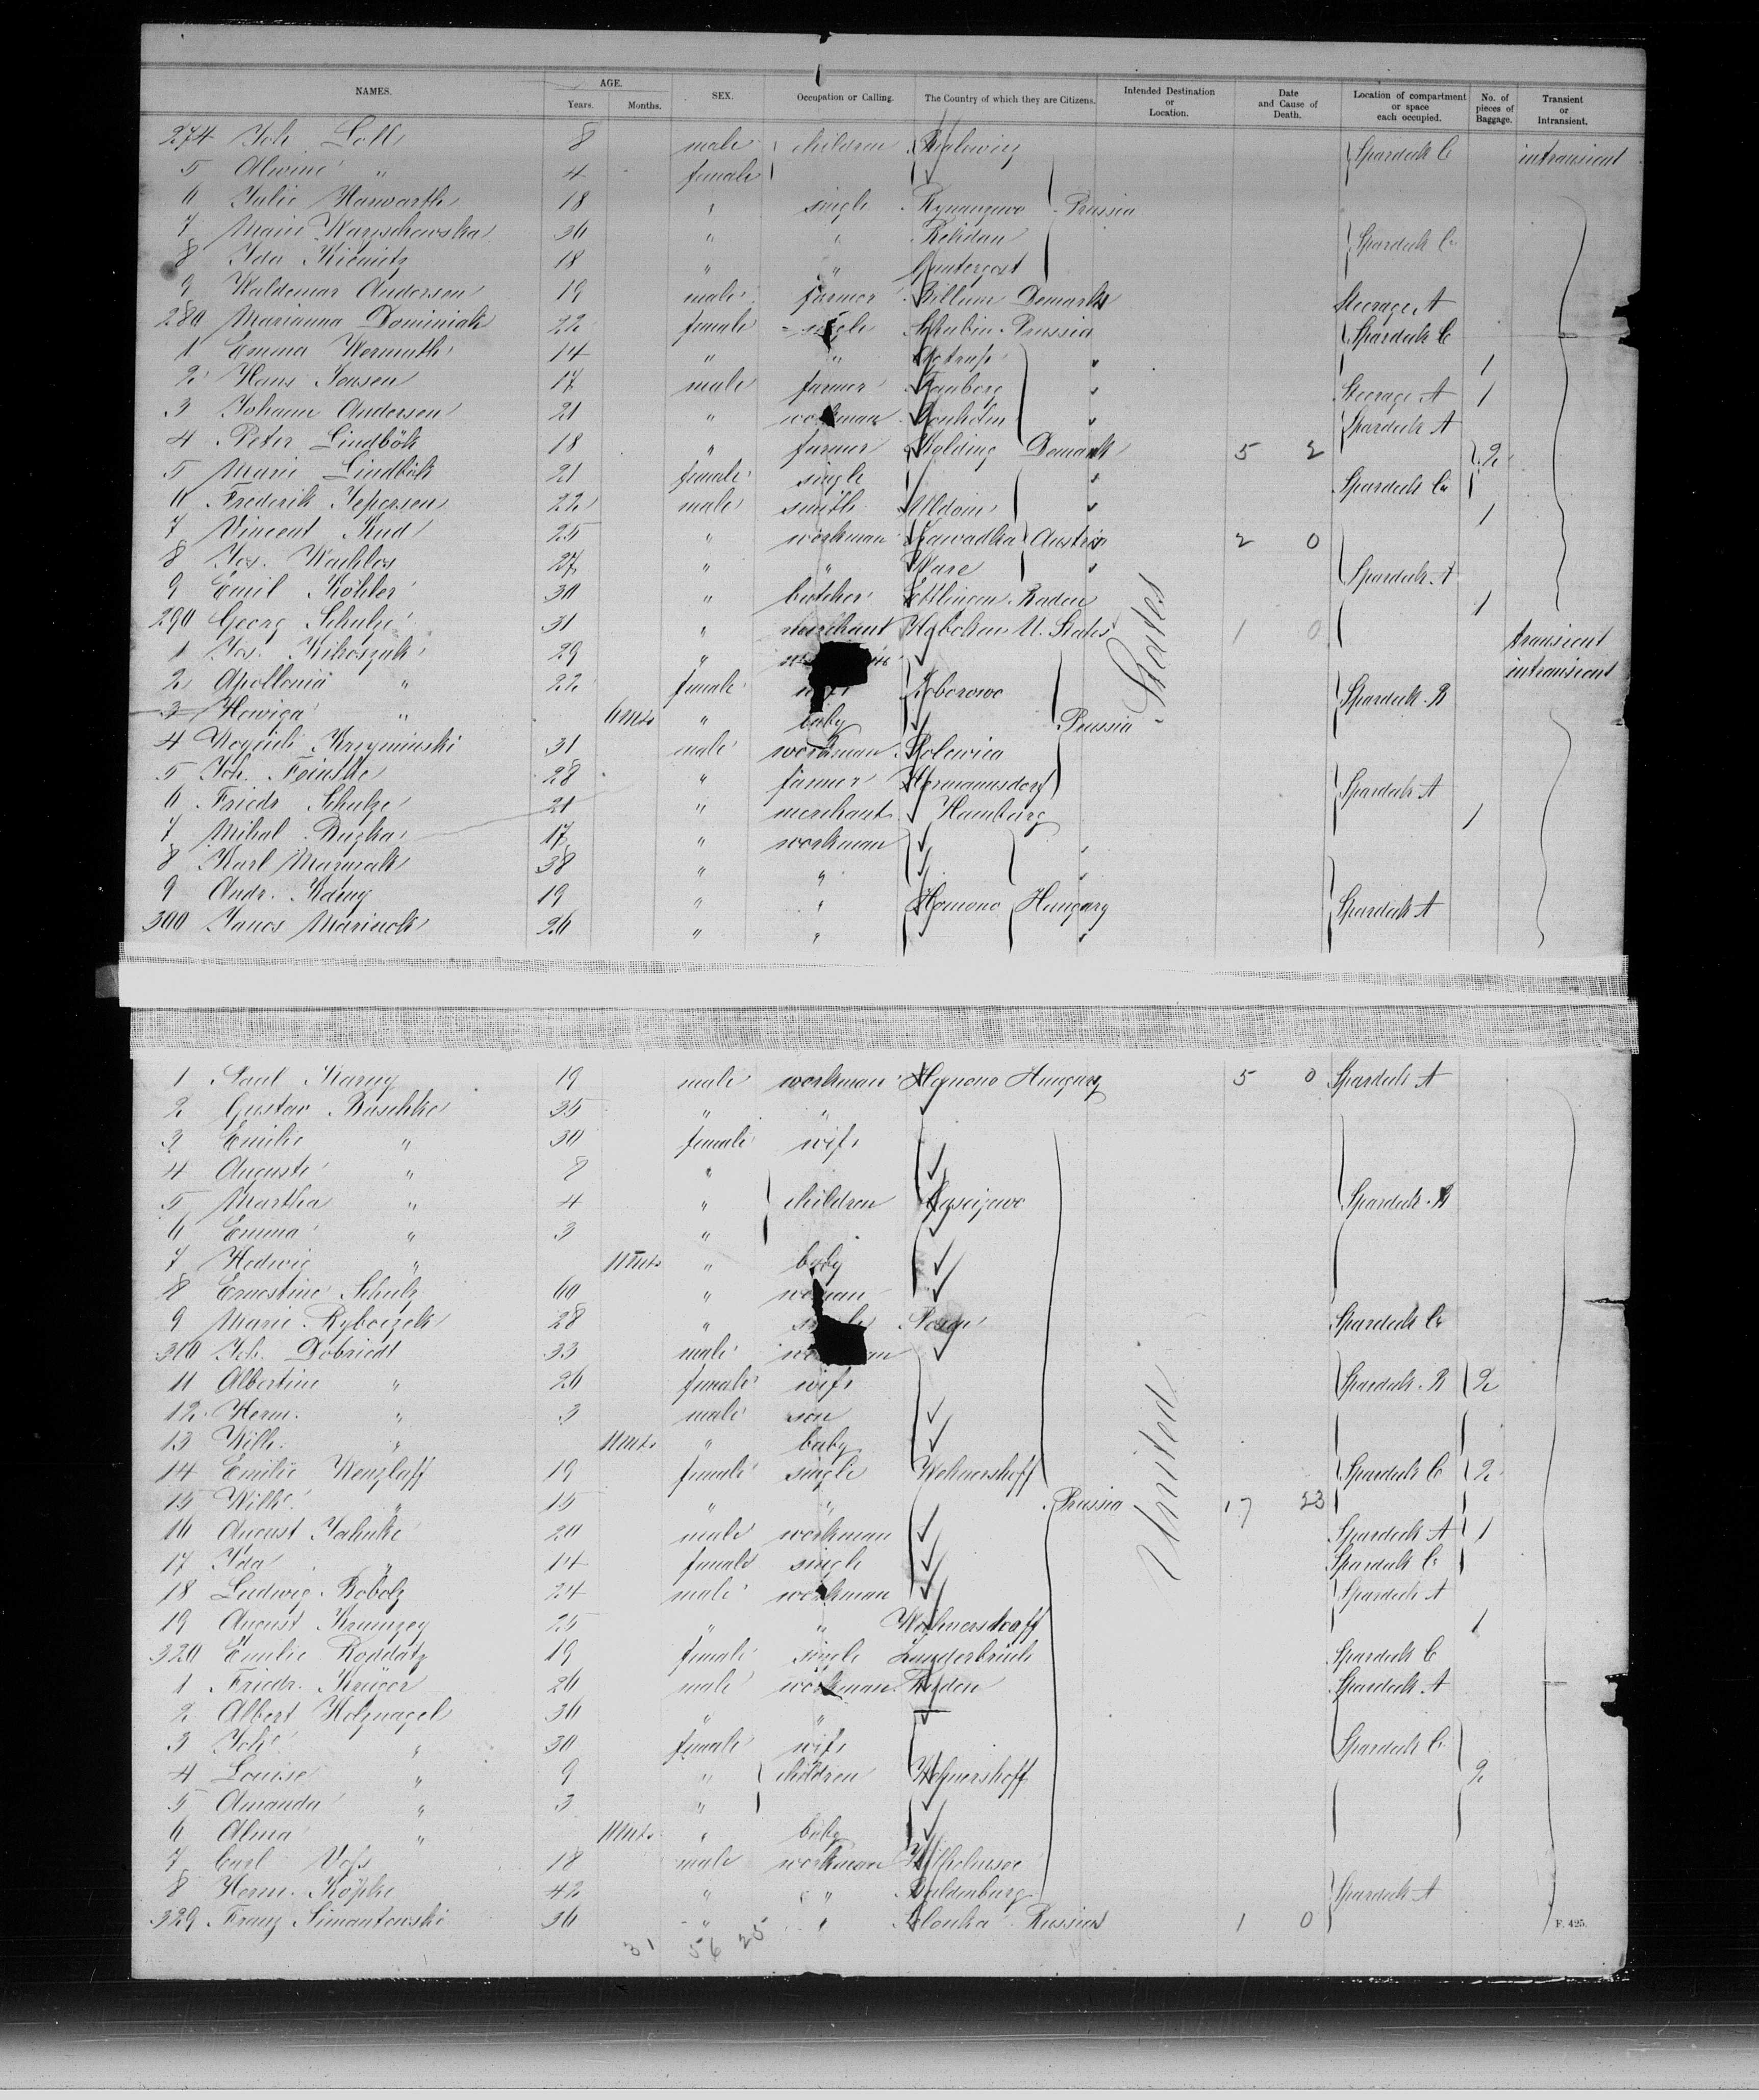 NAMES. AGE. Years. Months. SEX. Occupation or Calling. The Country of which they are Citizens. Intended Destination or Location. Date and Cause of Death. Location of compartment or space each occupied. No. of pieces of Baggage. Transient or Intransient.
274 Joh 8 male children Spardeck C intransient
5 Alwine " 4 female
6 Julie 18 " single Prussia
7 Marie 36 " " Spardeck C
8 Ida 18 " "
9 Waldemar Andersen 19 male farmer Billum Demark Steerage A
280 Marianna Dominiak 22 female single Schubin Prussia Spardeck C
1 Emma Wermuth 14 " " " 1
2 Hans Jensen 17 male farmer " Steerage A 1
3 Johann Andersen 21 " workman " Spardeck A
4 Peter Lindbök 18 " farmer Kolding Demark 5 2 2
5 Marie Lindbök 21 female single " Spardeck C
6 Frederik Jepersen 22 male smith " 1
7 Vincent 25 " workman Zawadka Austria 2 0
8 Jos. 27 " " " Spardeck A
9 Emil Köhler 30 " butcher Ettlingen Baden 1
290 Georg Schulze 31 " merchant Hoboken U. States 1 0 transient
1 Jos. 29 " intransient
2 Apollonia " 22 female wife Spardeck B
3 Hewiga " 6 mts " baby Prussia
4 31 male workman
5 Joh. 28 " farmer Hermannsdorf Spardeck A
6 Friedr Schulze 21 " merchant Hamburg 1
7 Mihal Ruzka 17 " workman "
8 Karl 38 " " "
9 Andr. 19 " " Homono Hungary Spardeck A
300 Janos 26 " " "
States
1 Paul 19 male workman Homono Hungary 5 0 Spardeck A
2 Gustav Buschke 35 " "
3 Emilie " 30 female wife
4 Auguste " 8 "
5 Martha " 4 " children Spardeck B
6 Emma " 3 "
7 Hedwig " 11 mts " baby
8 Ernestine Schulz 60 " woman
9 Marie 28 " single Posen Spardeck C
310 Joh. Dobriedt 33 male workman
11 Albertine " 26 female wife Spardeck B 2
12 Herm. " 3 male son
13 Wilh. " 11 mts " baby
14 Emilie Wenzlaff 19 female single Wehnershoff Spardeck C 2
15 Wilhe " 15 " " Prussia 17 23
16 August Jahnke 20 male workman Spardeck A 1
17 Ida " 14 female single Spardeck C
18 Ludwig 24 male workman Spardeck A
19 August 25 " " 1
320 Emilie Roddatz 19 female single Spardeck C
1 Friedr. Krüger 26 male workman Spardeck A
2 Albert Holznagel 36 " "
3 Johe " 30 female wife Spardeck C
4 Louise " 9 " children Wehnershoff 2
5 Amanda " 3 "
6 Alma " 11 mts " baby
7 Carl Voss 18 male workman
8 Herm. Köpke 42 " " Baldenburg Spardeck A
329 Franz Simantowski 36 " " Russia 1 0
United
31 56 25
F. 425.